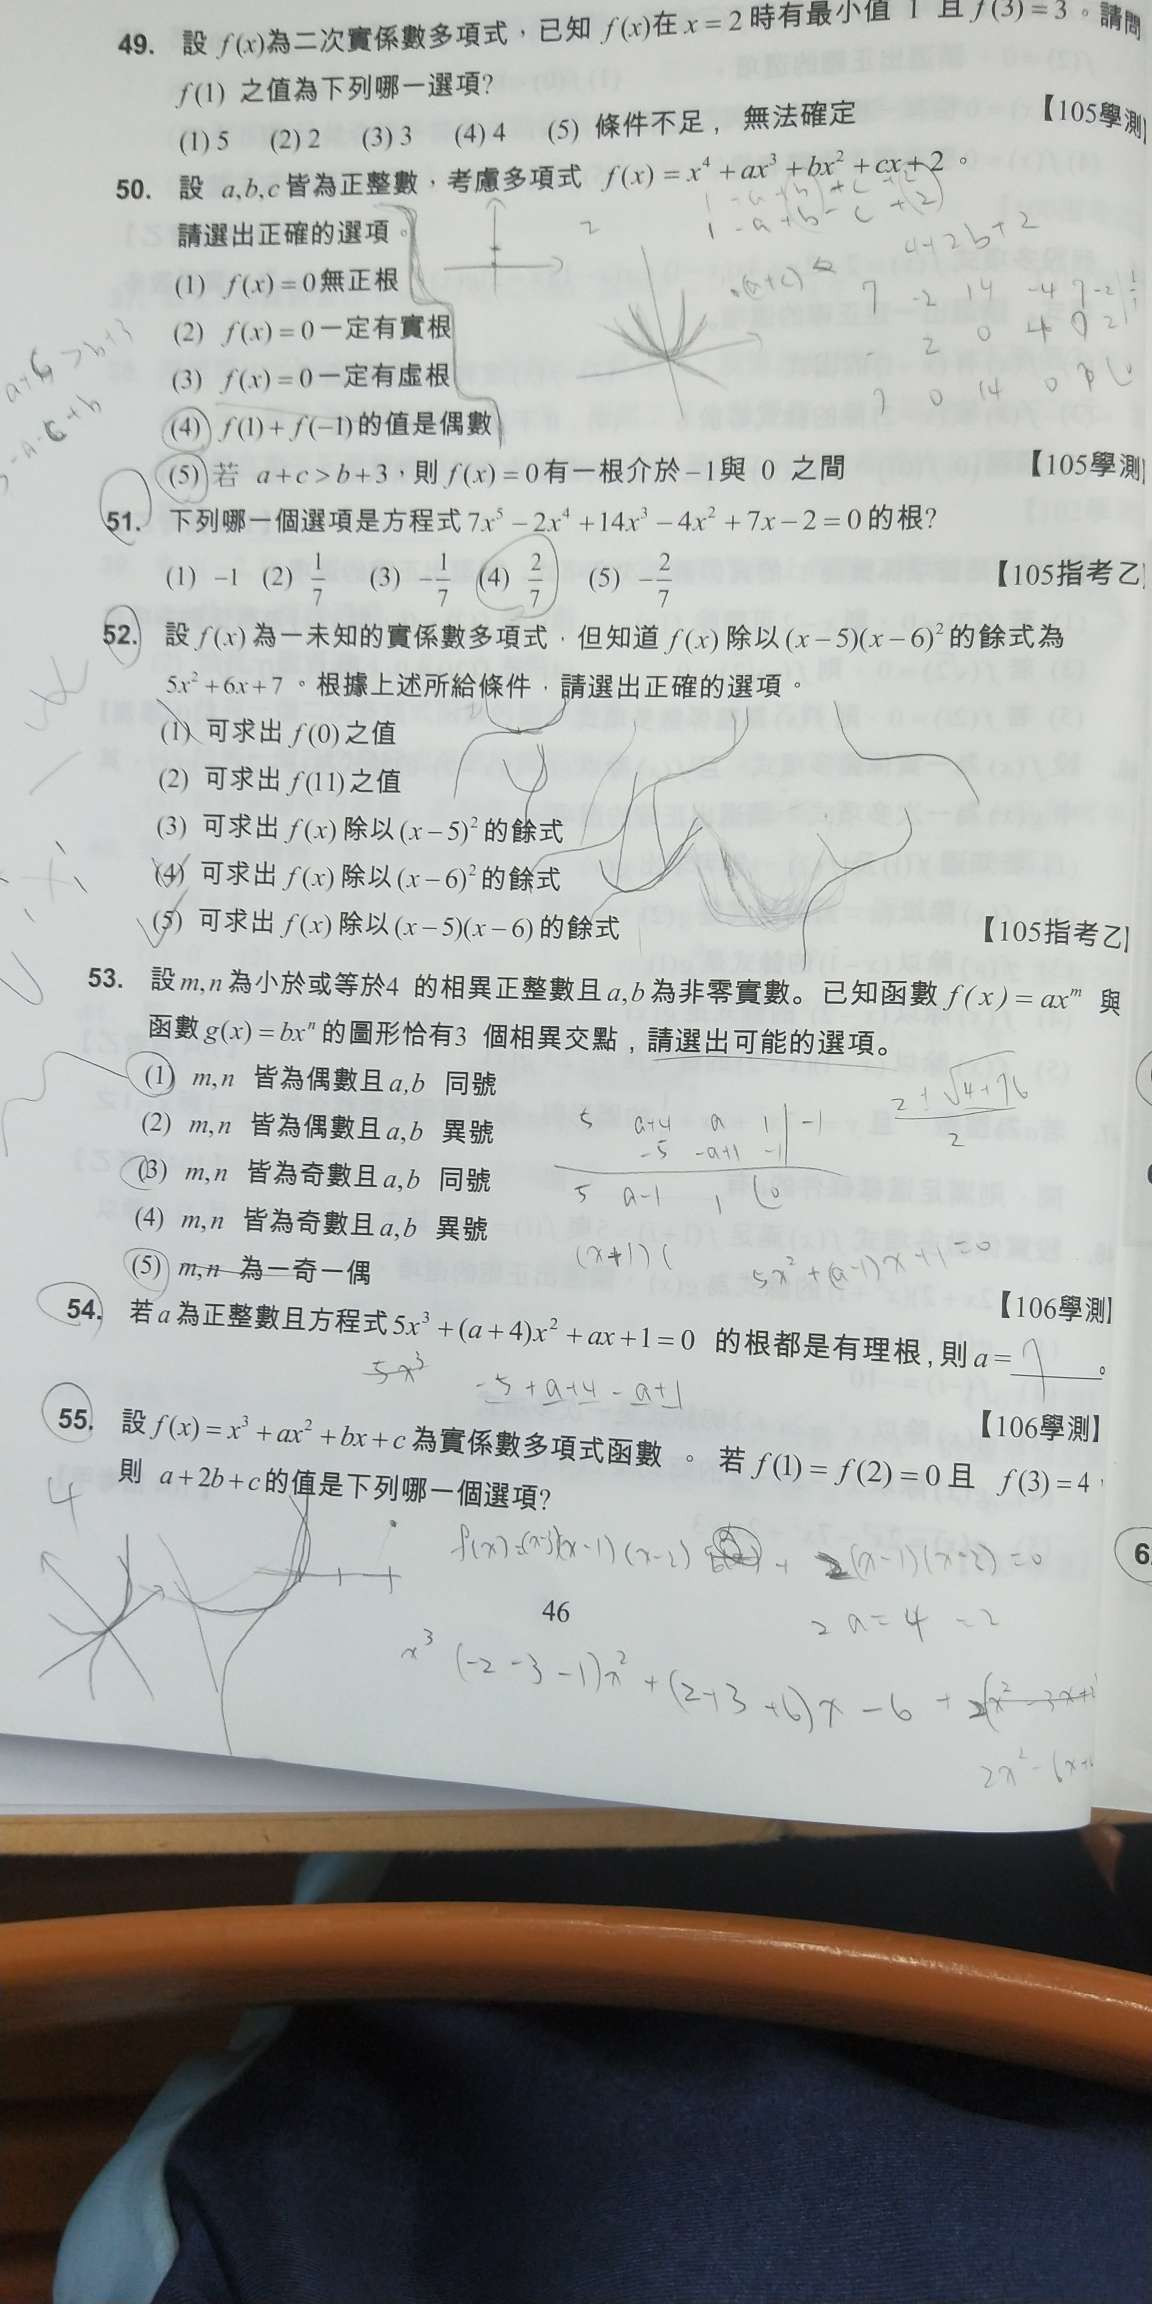 49. 設 f(x)為二次實係數多項式,已知 f(x)在 x = 2 時有最小值 1 且 f(3) = 3。請問
f(1) 之值為下列哪一選項?
(1) 5 (2) 2 (3) 3 (4) 4 (5) 條件不足, 無法確定 【105學測】
50. 設 a,b,c皆為正整數,考慮多項式 f(x) = x⁴ + ax³ + bx² + cx + 2 。
請選出正確的選項。
(1) f(x) = 0無正根
(2) f(x) = 0一定有實根
(3) f(x) = 0一定有虛根
(4) f(1) + f(−1)的值是偶數
(5) 若 a + c > b + 3,則 f(x) = 0有一根介於−1與 0 之間 【105學測】
51. 下列哪一個選項是方程式7x⁵ − 2x⁴ + 14x³ − 4x² + 7x − 2 = 0的根?
(1) −1 (2) 1/7 (3) −1/7 (4) 2/7 (5) −2/7 【105指考乙】
52. 設 f(x)為一未知的實係數多項式,但知道 f(x)除以(x−5)(x−6)²的餘式為
5x² + 6x + 7 。根據上述所給條件,請選出正確的選項。
(1) 可求出 f(0)之值
(2) 可求出 f(11)之值
(3) 可求出 f(x)除以(x−5)²的餘式
(4) 可求出 f(x)除以(x−6)²的餘式
(5) 可求出 f(x)除以(x−5)(x−6)的餘式 【105指考乙】
53. 設m,n為小於或等於4 的相異正整數且a,b為非零實數。已知函數 f(x) = axᵐ 與
函數g(x) = bxⁿ的圖形恰有3 個相異交點,請選出可能的選項。
(1) m,n 皆為偶數且a,b 同號
(2) m,n 皆為偶數且a,b 異號
(3) m,n 皆為奇數且a,b 同號
(4) m,n 皆為奇數且a,b 異號
(5) m,n 為一奇一偶
【106學測】
54. 若a為正整數且方程式5x³ + (a+4)x² + ax + 1 = 0 的根都是有理根,則a = 7 。
5x³ −5 + a+4 − a+1
【106學測】
55. 設f(x) = x³ + ax² + bx + c為實係數多項式函數 。 若 f(1) = f(2) = 0且 f(3) = 4,
則 a + 2b + c的值是下列哪一個選項?
2a = 4 = 2
46